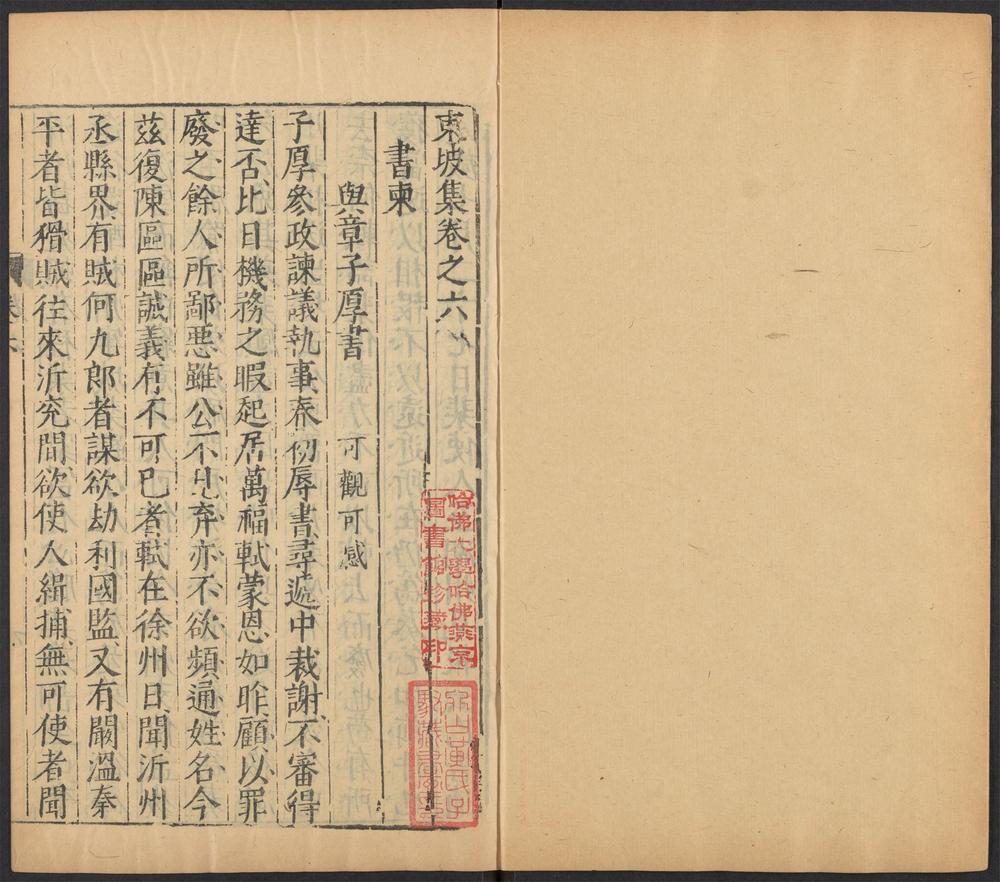 東坡集卷之六
書柬
與章子厚書 可觀可感
子厚參政諫議執事春初辱書尋遞中裁謝不審得
達否比日機務之暇起居萬福軾蒙恩如昨顧以罪
廢之餘人所鄙惡雖公不見弃亦不欲頻通姓名今
茲復陳區區誠義有不可已者軾在徐州日聞沂州
丞縣界有賊何九郎者謀欲劫利國監又有闞溫秦
平者皆猾賊往來沂兖間欲使人緝捕無可使者聞
哈佛大學哈佛燕京
圖書館珍藏印